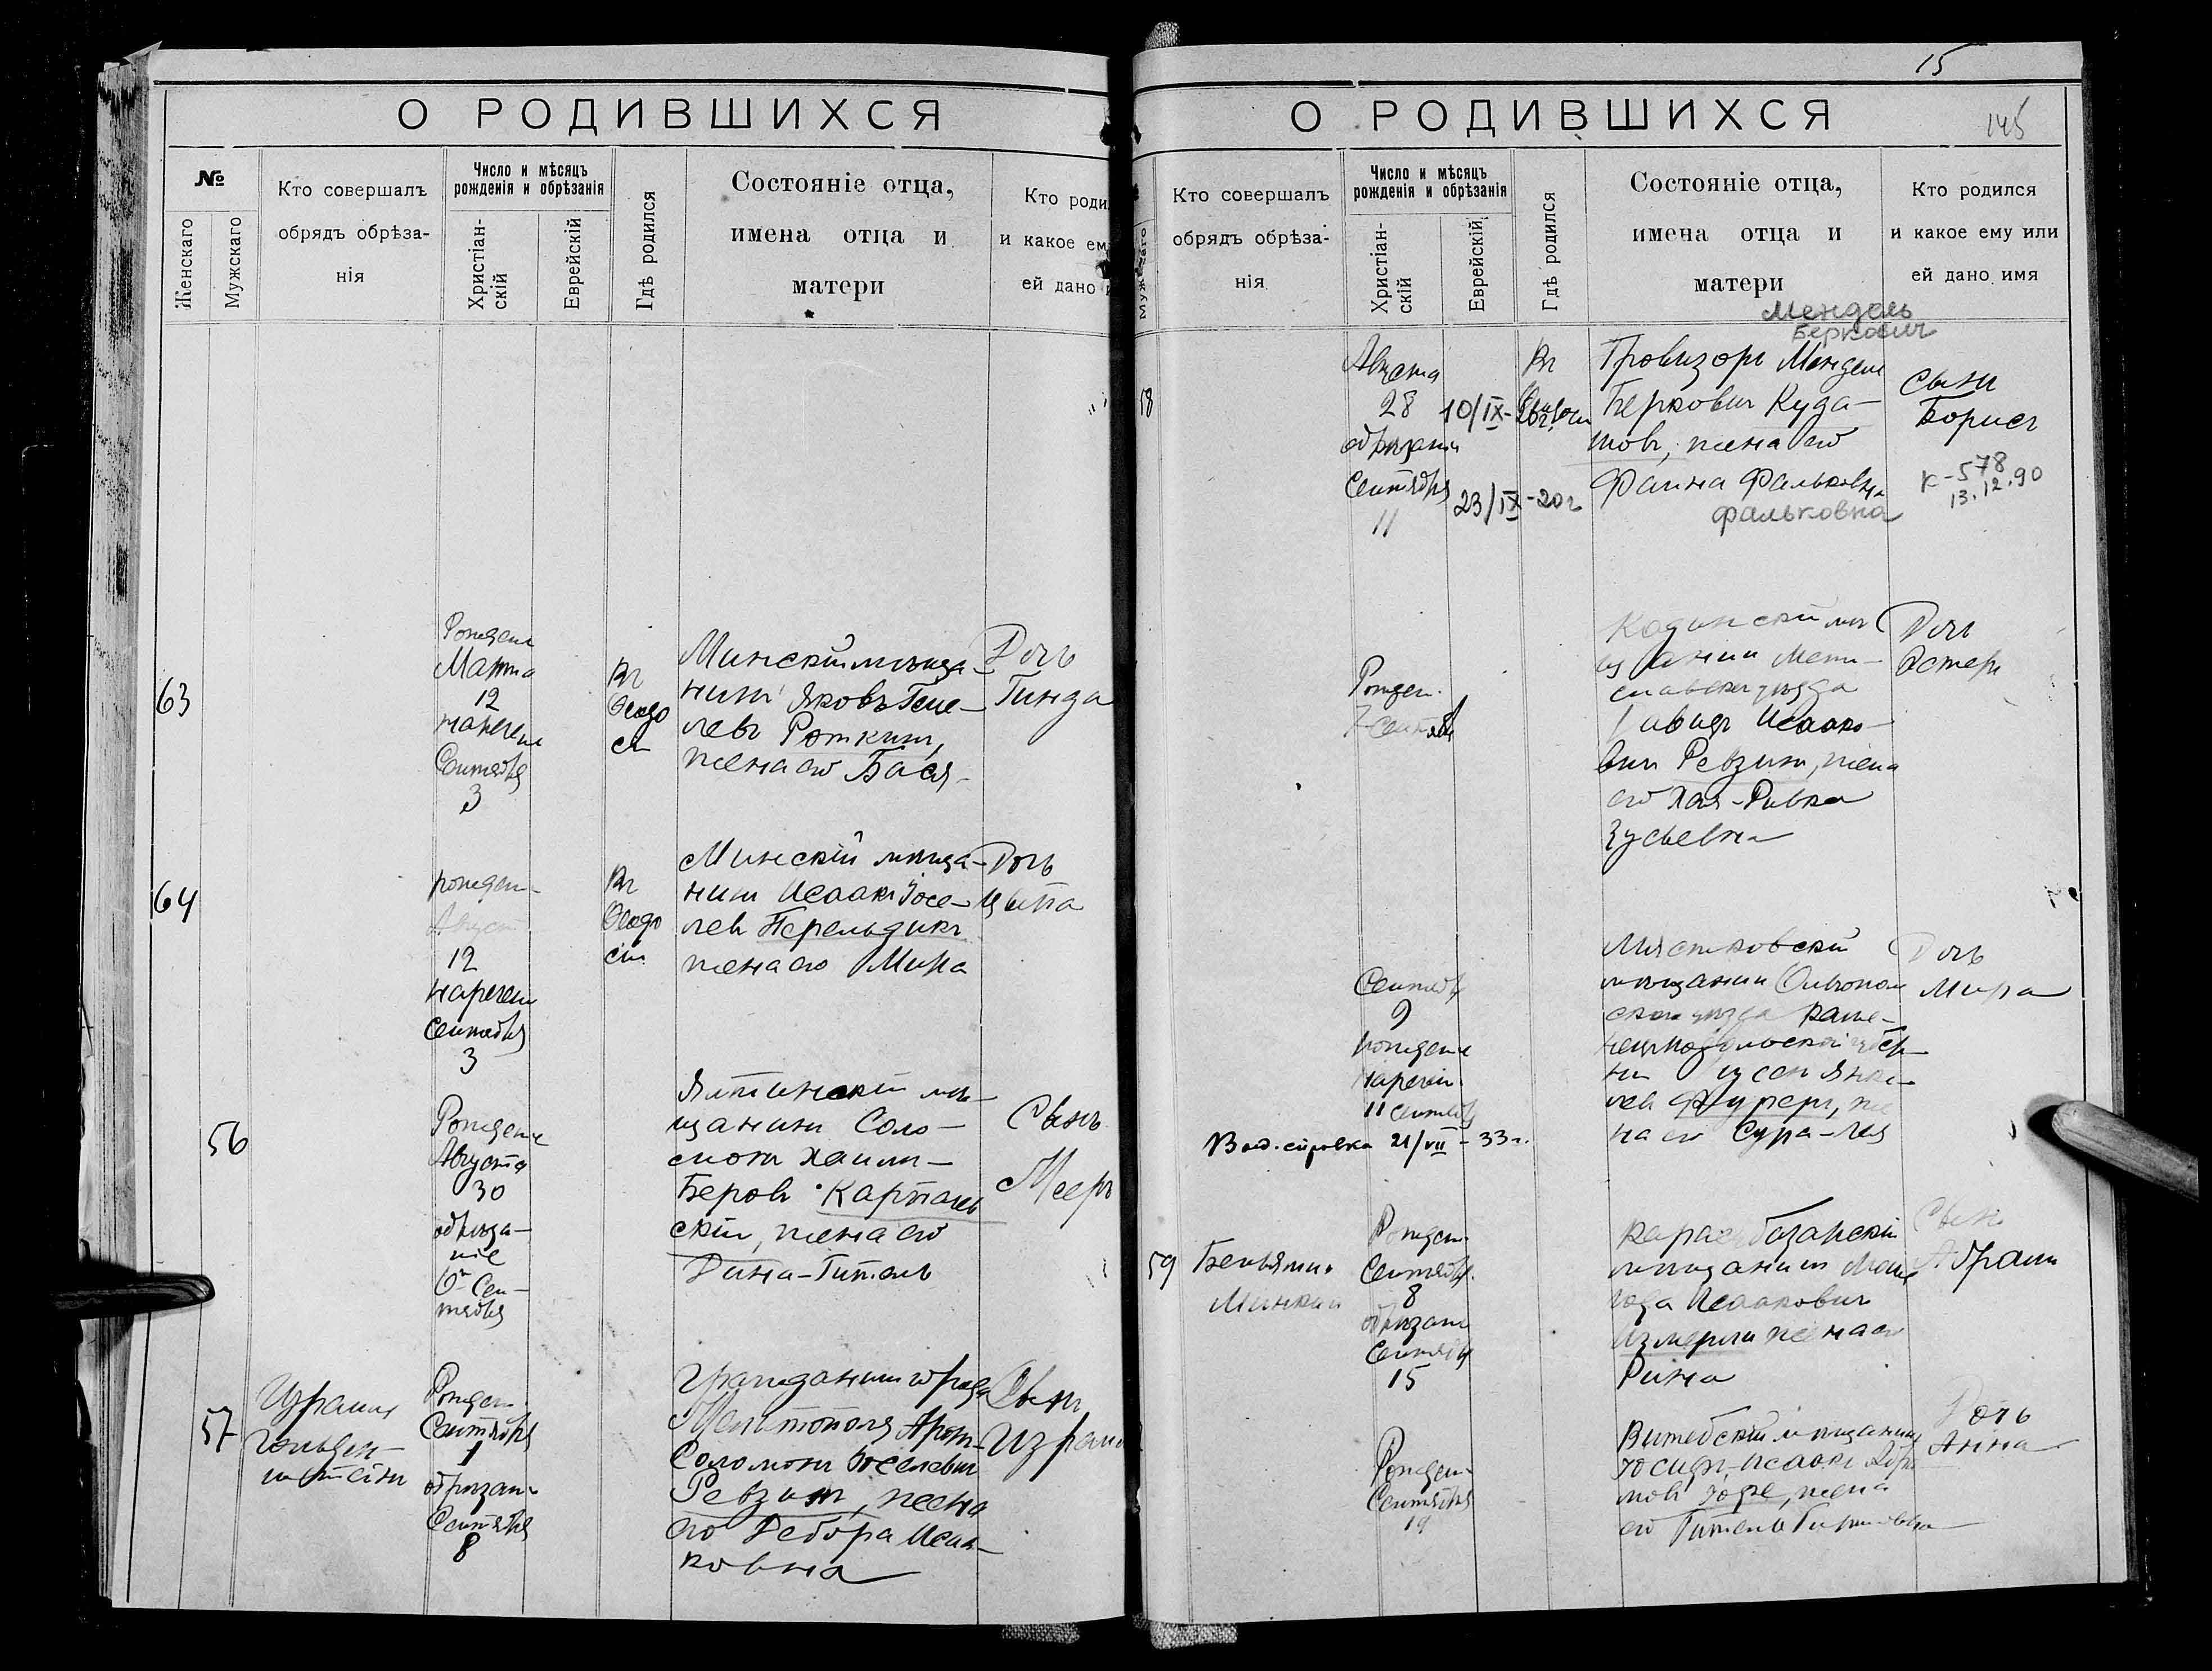 О РОДИВШИХСЯ
№
Женскаго
Мужскаго
Кто совершалъ
обрядъ обрѣза-
нія
Число и мѣсяцъ
рожденія и обрѣзанія
Христіан-
скій
Еврейскій
Гдѣ родился
Состояніе отца,
имена отца и
матери
Кто роди
и какое ем
ей дано
63
Рожден
Марта
12
наречен
Сентября
3
Вг
Ѳеодо
сіи
Минскій мѣща-
нинъ Яковъ
левъ Роткинъ,
жена его Бася
Дочь
Гинда
64
рожден-
Август
12
наречен
Сентября
3
Вг
Ѳеодо
сіи
Минскій мѣща-
нин Исаакъ Іосе-
левъ Перельдикъ
жена его Мира
Дочь
Цыпа
56
Рожден
Августа
30
обрѣза-
ніе
6 Сен-
тября
Ялтинскій мѣ-
щанинъ Соло-
монъ Хаимъ-
Беровъ Карпачев
скій, жена его
Дина-Гитель
Сынъ
Мееръ
57
Израиль
Гольден-
штейнъ
Рожден.
Сентября
1
обрѣзан-
Сентября
8
Гражданинъ города
Мелитополя Аронъ-
Соломонъ Іоселевич
Ревзинъ, жена
его Дебора Исаа-
ковна
Сынъ
Израиль
15
О РОДИВШИХСЯ
145
Кто совершалъ
обрядъ обрѣза-
нія
Число и мѣсяцъ
рожденія и обрѣзанія
Христіан-
скій
Еврейскій
Гдѣ родился
Состояніе отца,
имена отца и
матери
Кто родился
и какое ему или
ей дано имя
Мендель
Беркович
58
Августа
28
обрѣзан
Сентября
11
10/IX-
23/IX-20г
Вг
Провизоръ Мендель
Беркович Куда-
шовъ, жена его
Фаина Фальковна
фальковна
Сынъ
Борисъ
К-578
13.12.90
Рожден.
7 Сентяб
мѣ
щанин Мсти-
славскаго уѣзда
Давидъ Исаако-
вич Ревзинъ, жена
его Хая-Ривка
Зусьевна
Дочь
Эстеръ
Сентяб
9
рожден
наречен.
11 Сентяб
Выд. справка 21/VII-33 г.
мѣщанин
уѣзда Каме-
нецъ-подольской губер-
нии Янке-
лев Фуреръ, же
на его Сура-Лея
Дочь
Мира
59
Беньямин
Минкин
Рожден.
Сентябр.
8
обрѣзан
Сентябр
15
Карасубазарскій
мѣщанинъ
Исаакович
Измерли жена его
Рина
Сынъ
Абрамъ
Рожден-
Сентября
19
Витебскій мѣщанинъ
Іосифъ-Исаакъ Абра
мовъ Іофе, жена
его Гительа Гиршовна
Дочь
Анна